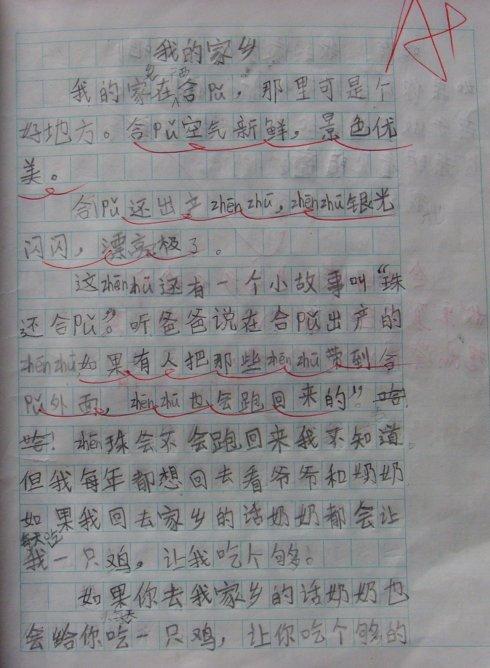 A+
我的家乡
我的家乡在广西合pǔ，那里可是个
好地方。合pǔ空气新鲜，景色优
美。
合pǔ还出产zhēn zhū，zhēn zhū银光
闪闪，漂亮极了。
这zhēn zhū还有一个小故事叫“珠
还合pǔ”。听爸爸说在合pǔ出产的
zhēn zhū如果有人把那些zhēn zhū带到合
pǔ外面，zhēn zhū也会跑回来的”
zhēn珠会不会跑回来我不知道
但我每年都想回去看爷爷和奶奶
如果我回去家乡的话奶奶都会让
我每天吃一只鸡。让我吃个够。
如果你去我家乡的话奶奶也
会给你吃一只鸡，让你吃个够的